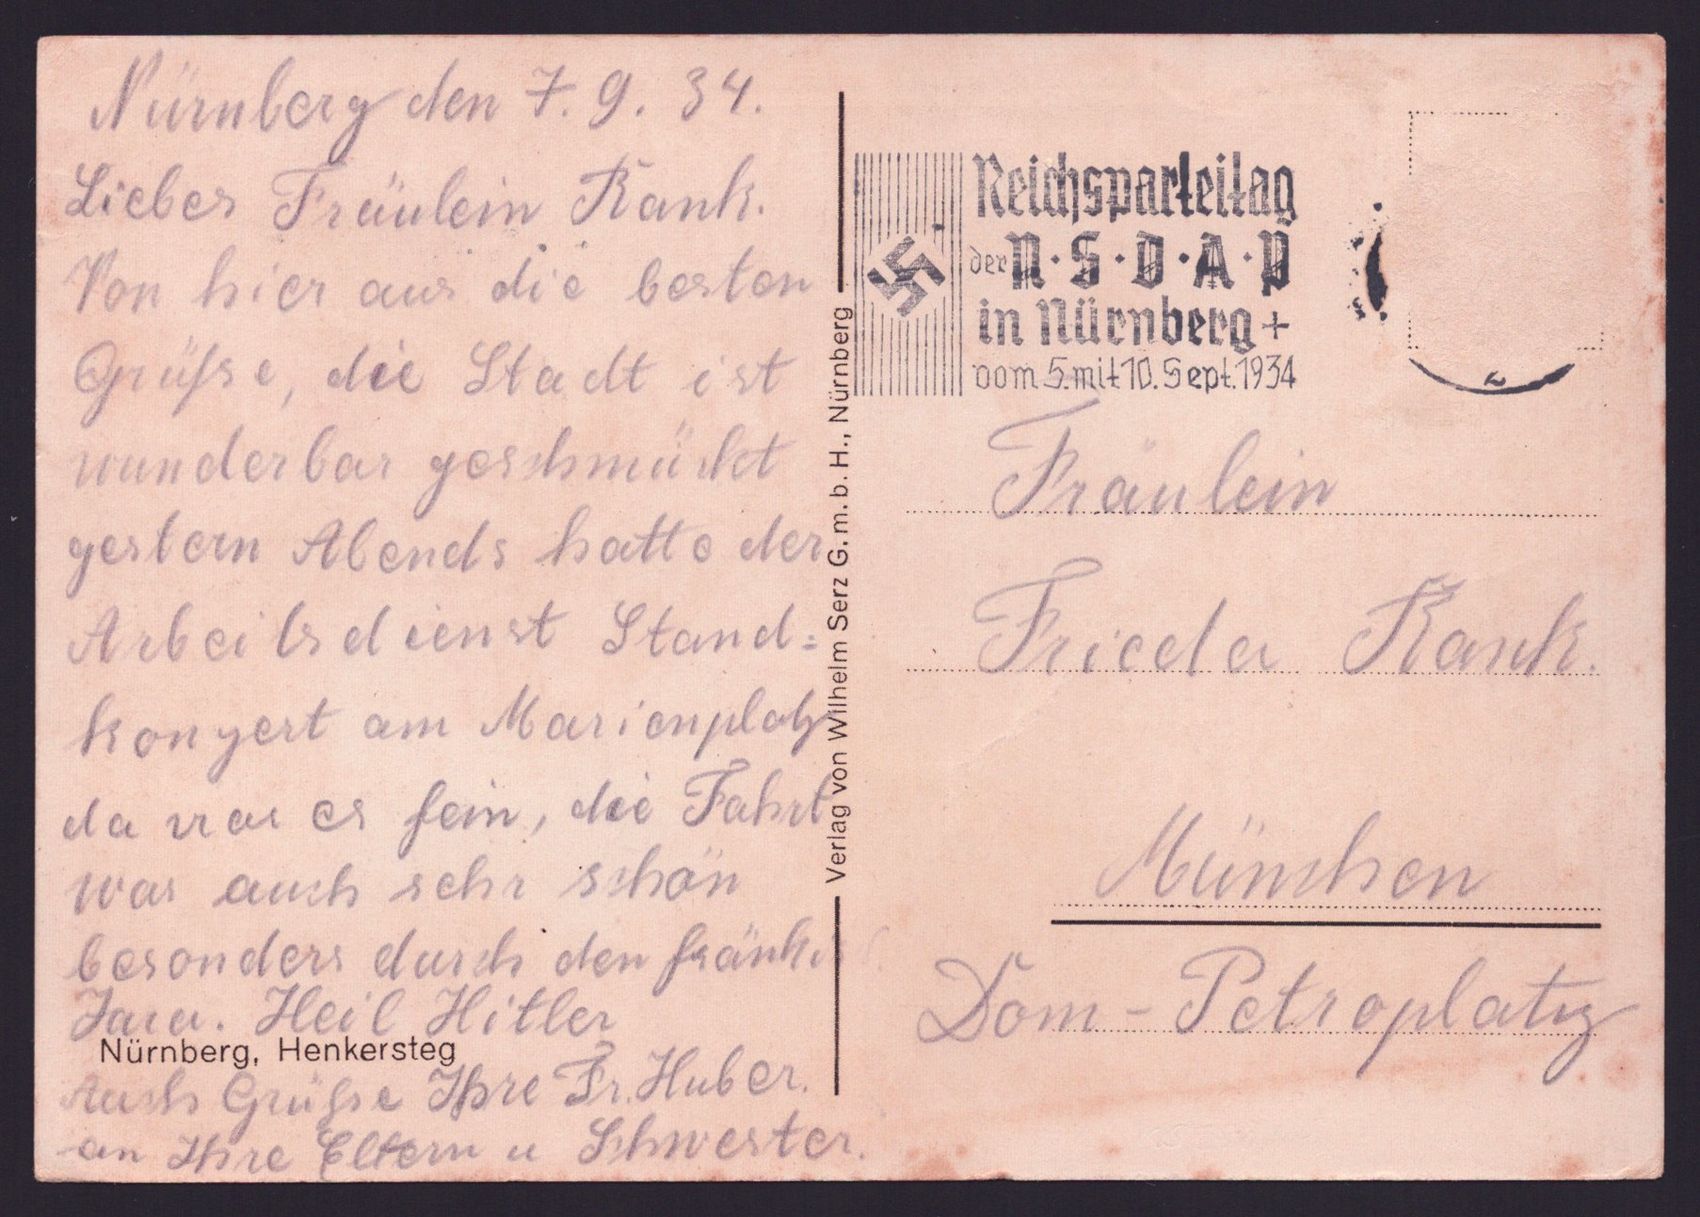 Nürnberg den 7. 9. 34.
Liebes Fräulein Rank.
Von hier aus die besten
Grüße, die Stadt ist
wunderbar geschmückt
gestern Abends hatte der
Arbeitsdienst Stand=
konzert am Marienplatz
da war es fein, die Fahrt
war auch sehr schön
besonders durch den fränk.
Jura. Heil Hitler
Nürnberg, Henkersteg
Auch Grüße Ihre Fr. Huber.
an Ihre Eltern u Schwester.
Verlag von Wilhelm Serz G.m.b.H., Nürnberg
Reichsparteitag
der N·S·D·A·P
in Nürnberg +
vom 5. mit 10. Sept. 1934
Fräulein
Frieda Rank.
München
Dom-Petroplatz